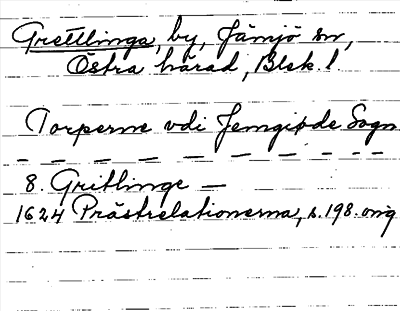 Grettlinga, by, Jämjö sn,
Östra härad, Blek. l.
Torperne vdi Jemgiøde Sogn
— — — — — — — — — — —
8. Gritlinge —
1624 Prästrelationerna, s. 198. orig